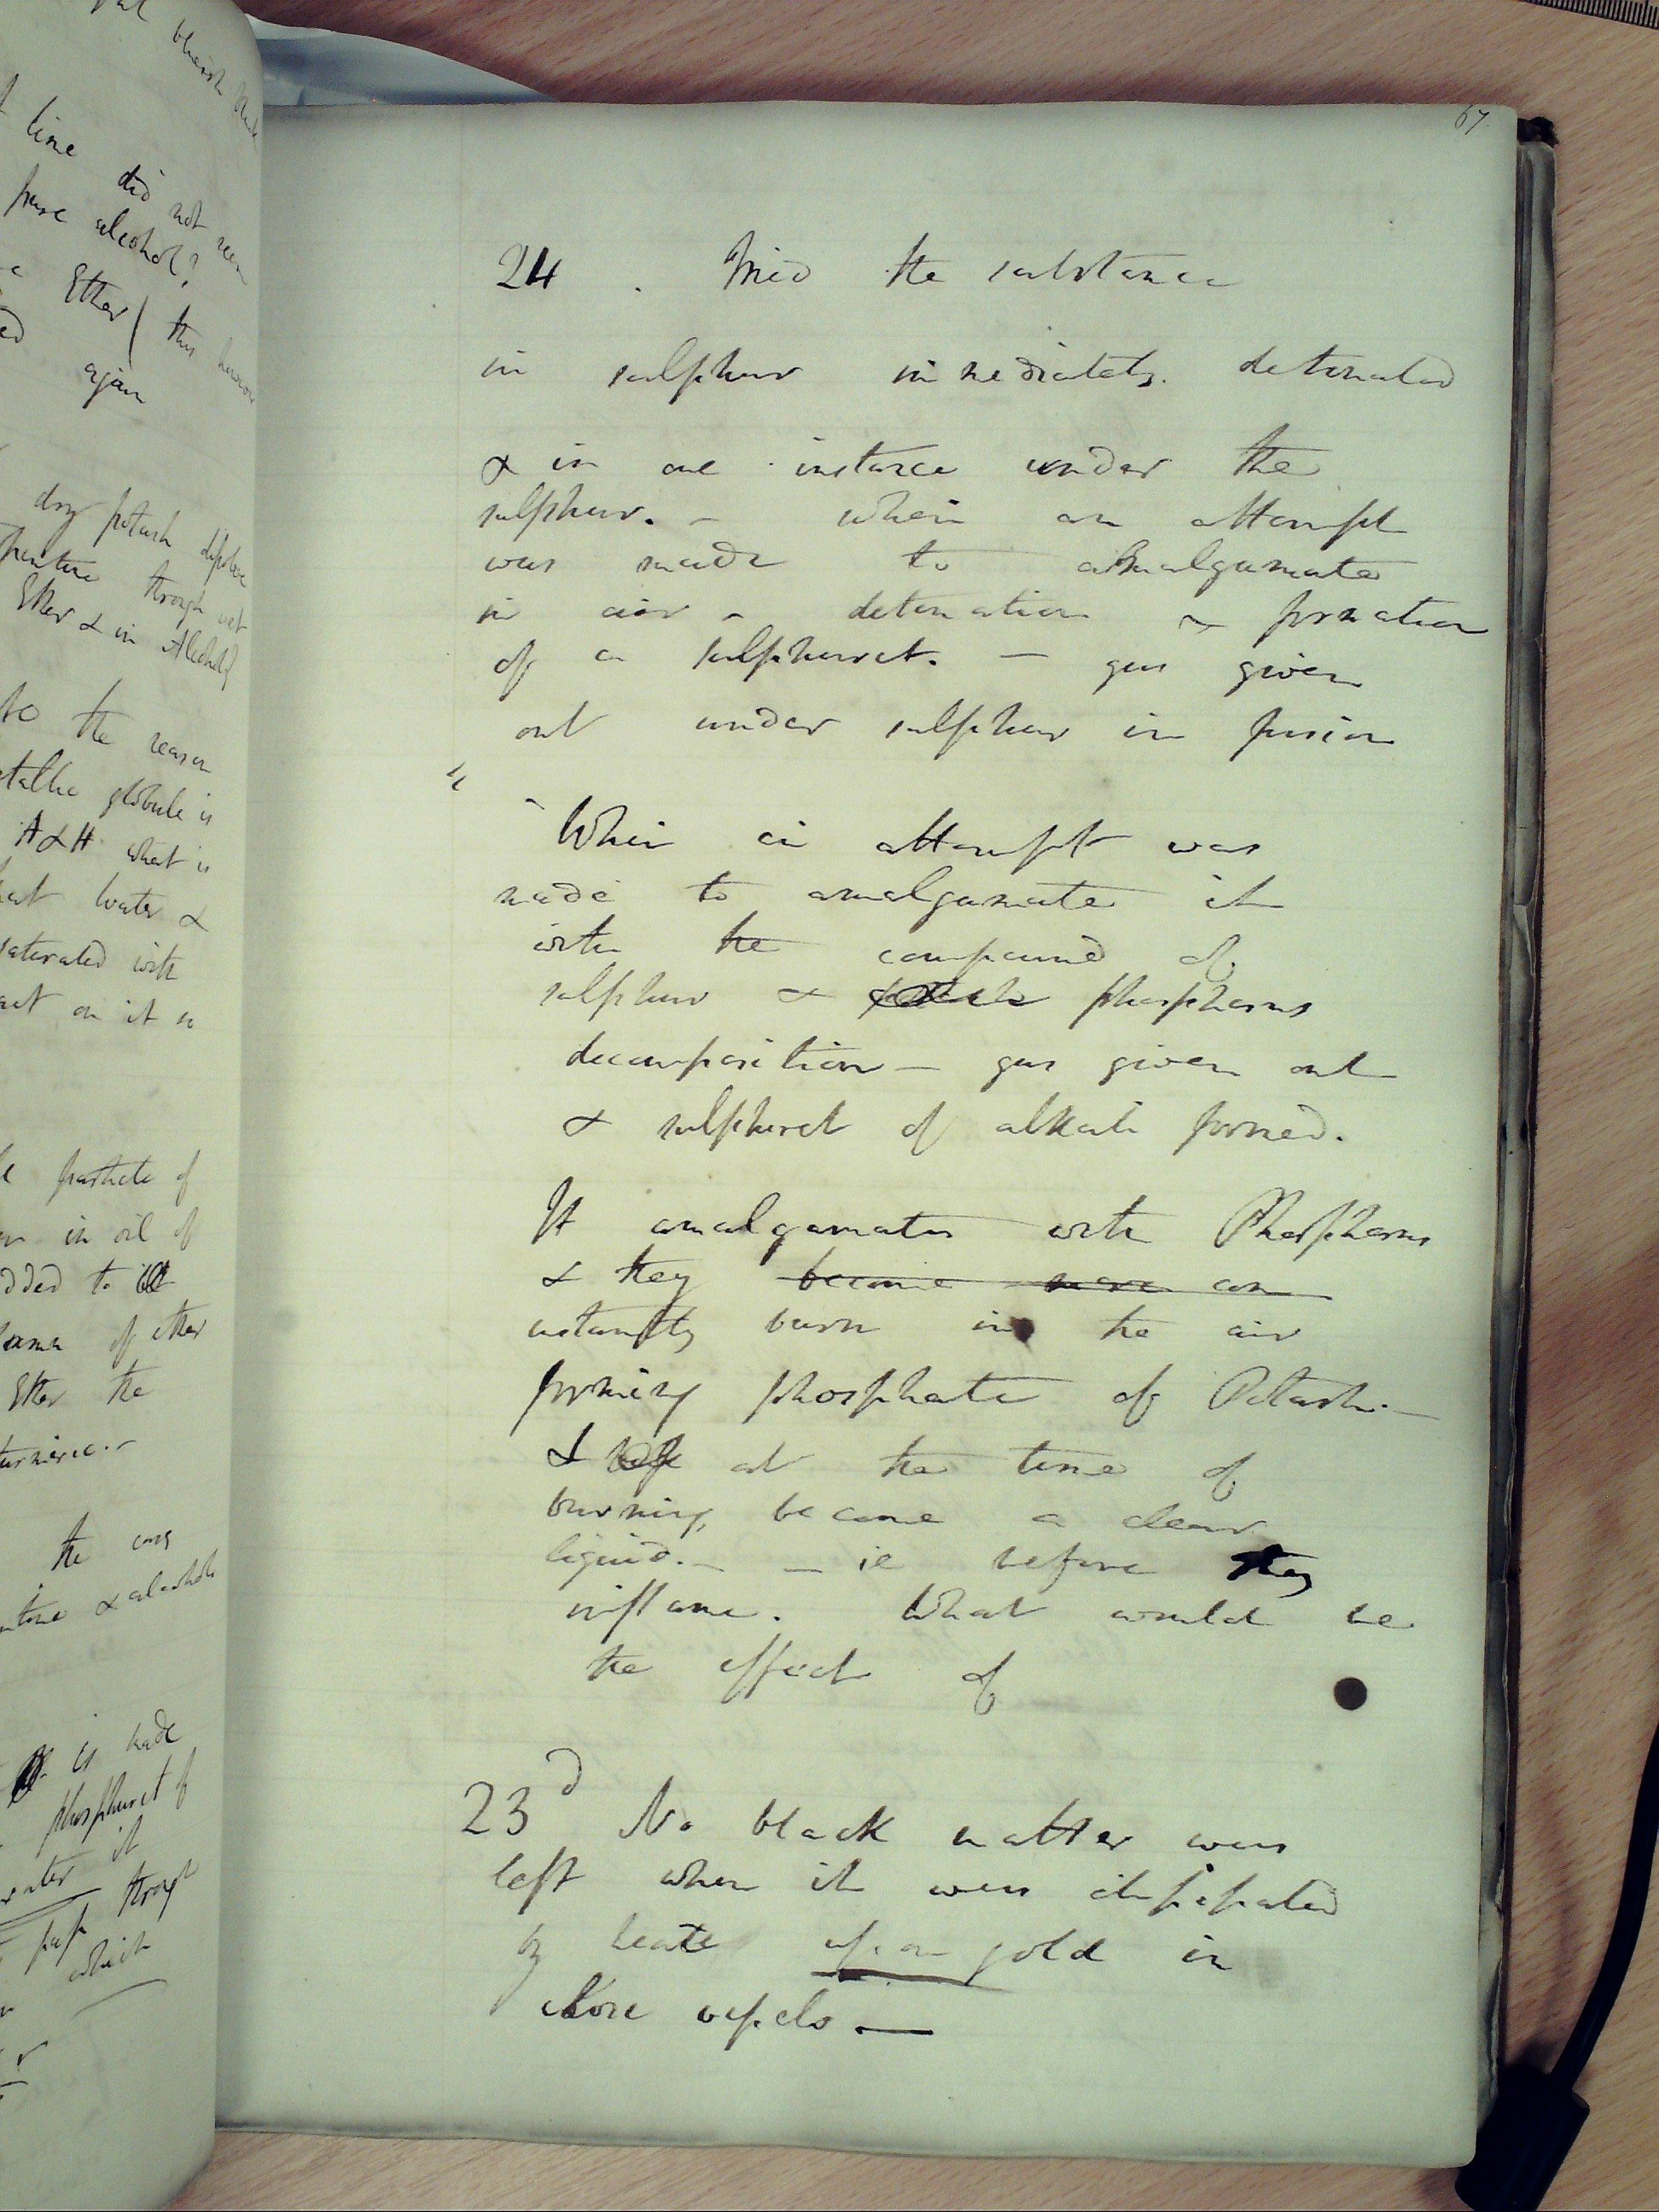 bluish
lime did not seem
pure alcohol?
Ether ( this however
again
dry potash dissolve
through wet
Ether & in Alcohol
to the reason
metallic globule is
A & H what is
that water &
saturated with
act on it so
particle of
in oil of
added to it
of ether
Ether the
turmeric. -
the
& alcohol
is made
phosphuret of
water it
pass through
which
67.
24 . Tried the substance
in sulphur immediately. detonated
& in one instance under the
sulphur. - When an attempt
was made to amalgamate
in air - detonation & formation
of a sulphuret. - gas given
out under sulphur in fusion
When an attempt was
made to amalgamate it
with the compound of
sulphur & phosphorus
decomposition - gas given out
& sulphuret of alkali formed.
It amalgamates with Phosphorus
& they become more com
instantly burn in the air
forming phosphate of Potash. -
& at the time of
burning, become a clear
liquid. - - ie before they
inflame. What would be
the effect of
23d No black matter was
left when it was dissipated
by heat upon gold in
close vessels -